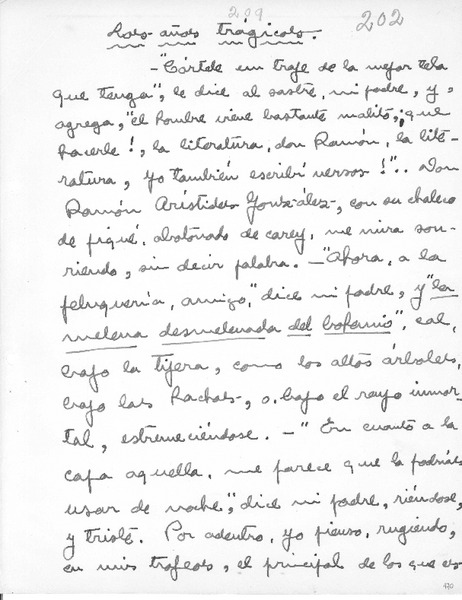 209 202
Los años trágicos.
—"Córtele un traje de la mejor tela
que tenga", le dice al sastre, mi padre, y,
agrega, "el hombre viene bastante malito, ¡que
hacerle!, la literatura, don Ramón, la lite-
ratura, yo también escribí versos!".. Don
Ramón Arístides González, con su chaleco
de piqué, abotonado de carey, me mira son-
riendo, sin decir palabra. —"Ahora, a la
peluquería, amigo," dice mi padre, y "la
melena desmelenada del bohemio", cae,
bajo la tijera, como los altos árboles,
bajo las hachas, o bajo el rayo inmor-
tal, estremeciéndose. —"En cuanto a la
capa aquella, me parece que la podrías
usar de noche", dice mi padre, riéndose,
y triste. Por adentro, yo pienso, rugiendo,
en mis trofeos, el principal de los que es